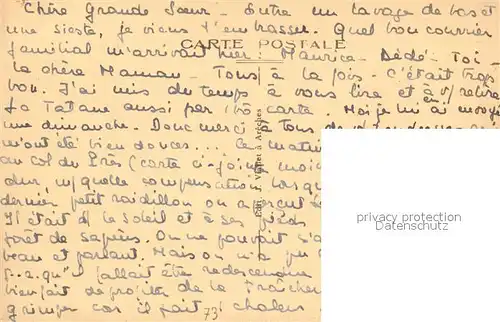 Chère Grande Sœur - Entre un lavage de bas et
une sieste, je viens t'embrasser. Quel bon courrier
CARTE POSTALE
familial m'arrivait hier : Maurice - Dédé - Toi -
la chère Maman - Tous à la fois - C'était trop
bon. J'ai mis du temps à vous lire et à relire
La Tatane aussi par carte. Moi je lui ai envoyé
une dimanche. Donc merci à tous
m'ont été bien douces... Ce matin
au col du Près (carte ci-jointe) moi
dur, quelle compensation lorsqu
dernier petit raidillon on aperçut
Il était le soleil et à ses pieds
forêt de sapins. On ne pouvait s'a
beau et parlant. Mais on n'a pu
p.c.qu' il fallait être redescendu
bien fait de profiter de la fraîcheur
grimper car il fait chaleur
73
Edit. J. à Arêches
privacy protection
Datenschutz